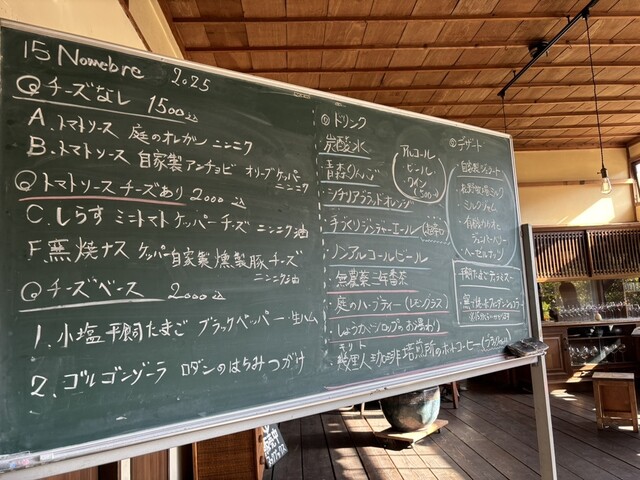 15 Nomebre 2025
◎チーズなし 1500込
A. トマトソース 庭のオレガノ ニンニク
B. トマトソース 自家製アンチョビ オリーブケッパー ニンニク
◎トマトソースチーズあり 2000込
C. しらす ミニトマトケッパーチーズ ニンニク油
F. 焼ナス ケッパー自家製燻製豚チーズ ニンニク油
◎チーズベース 2000込
1. 小塩平飼たまご ブラックペッパー・生ハム
2. ゴルゴンゾーラ ロダンのはちみつがけ
◎ドリンク
・炭酸水
・青森りんご
・シチリアブラッドオレンジ
・手づくりジンジャーエール
・ノンアルコールビール
・無農薬三年番茶
・庭のハーブティー(レモングラス)
・しょうがシロップのお湯わり
珈琲焙煎所のホットコーヒー
アルコール
ビール
ワイン
◎デザート
・自家製ジェラート
ミルクジャム
ヘーゼルナッツ